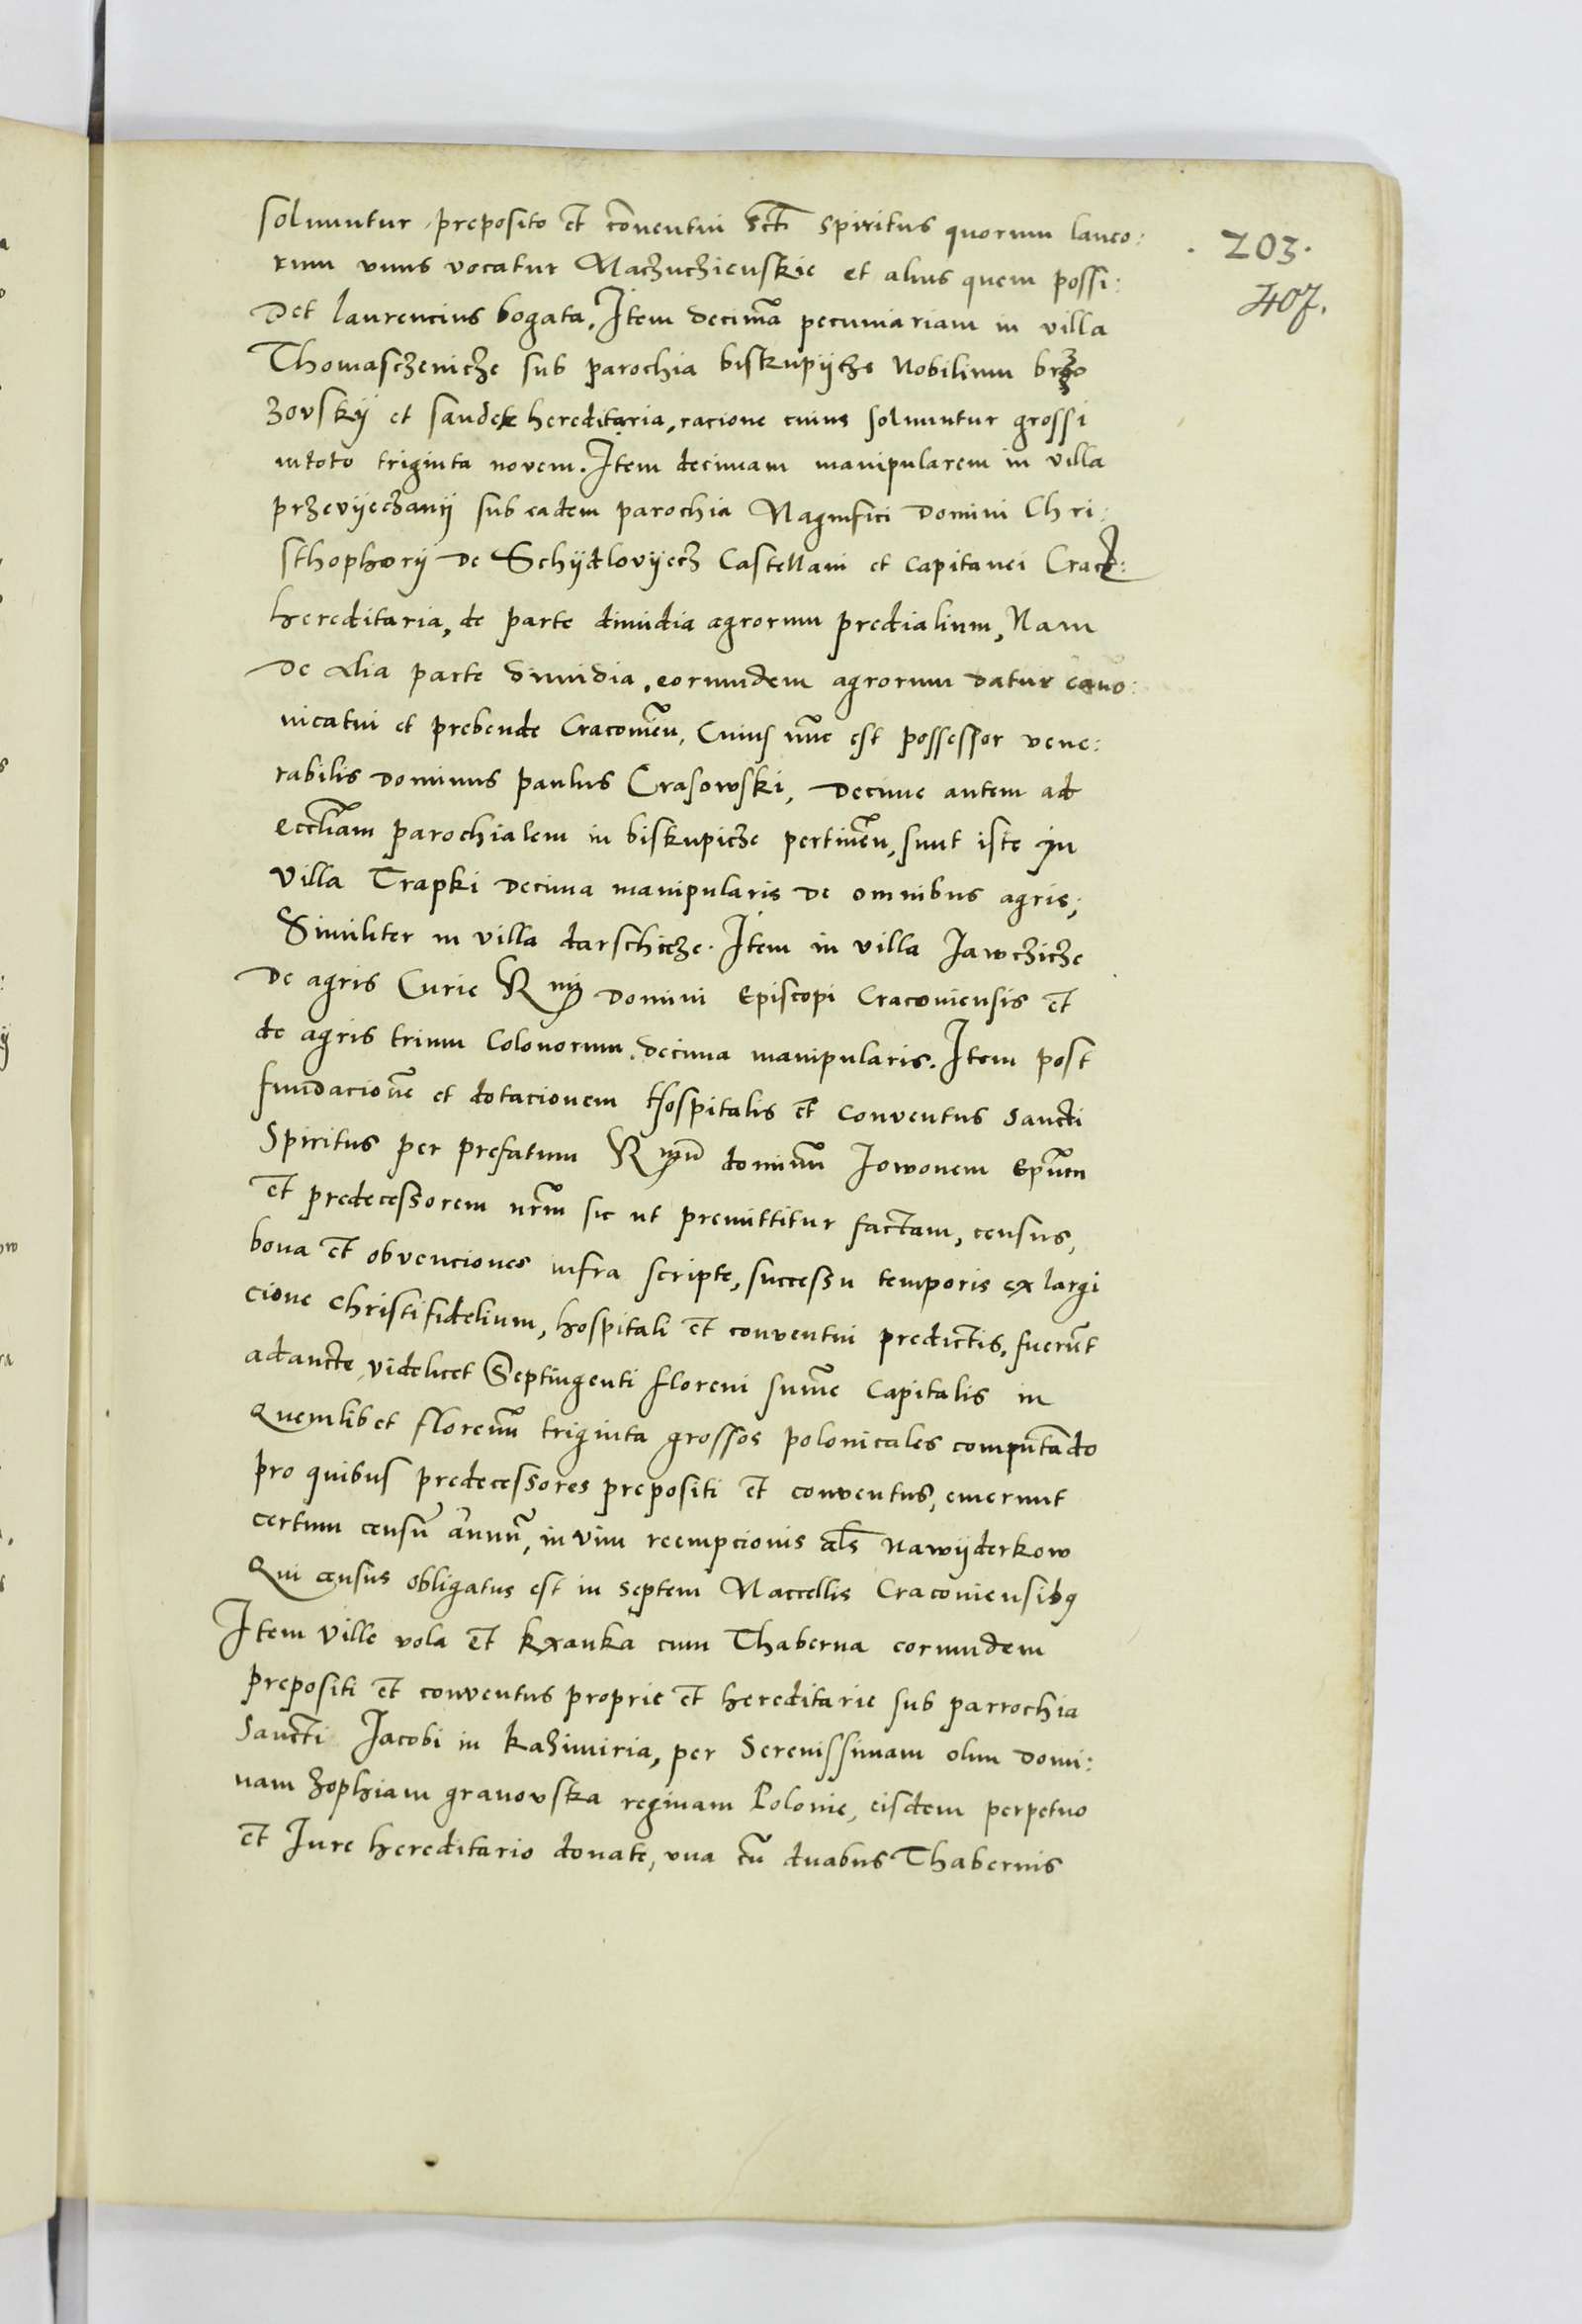 soluuntur preposito et cōuentui Sct̄i Spiritus quorum laneo:
rum vnus vocatur Maczuczienskie et alius quem possi:
det laurencius bogata. Item decimā pecuniariam in villa
Thomasczenicze sub parochia biskupijcze Nobilium brzo
zovskij et sandek hereditaria, racione cuius soluuntur grossi
intoto triginta novem. Item decimam manipularem in villa
przevijeczanij sub eadem parochia Magnifici Domini Chri:
sthophorij de Schijdlovijecz Castellani et Capitanei Crac̄:
hereditaria, de parte dimidia agrorum predialium, Nam
de alia parte dimidia, eorumdem agrorum datur cano:
nicatui et prebende Cracouieñ, Cuius nūc est possessor vene:
rabilis dominus paulus Crasowski, Decime autem ad
eccl̄iam parochialem in biskupicze pertineñ, sunt iste in
villa Trapki decima manipularis de omnibus agris,
Similiter in villa darschicze. Item in villa Jawczicze
de agris Curie Rmi Domini Episcopi Cracouiensis et
de agris trium Colonorum. decima manipularis. Item post
fundacionē et dotacionem Hospitalis et conventus sancti
Spiritus per prefatum Rmū dominū Iowonem Ep̄um
et predecessorem nr̄m sic ut premittitur factam, census,
bona et obvenciones infra scripte, successu temporis ex largi
cione christifidelium, hospitali et conventui predictis, fuerūt
adaucte, videlicet Septingenti floreni sum̄e Capitalis in
quemlibet florenū triginta grossos polonicales computādo
pro quibus predecessores prepositi et conventus, emerunt
certum censū annuū, in vim reempcionis al̄s nawijderkow
Qui census obligatus est in septem Maccellis Cracouiensibq
Item ville vola et kxanka cum Thaberna eorumdem
prepositi et conventus proprie et hereditarie sub parrochia
sancti Jacobi in kazimiria, per Serenissimam olim domi:
nam zophiam granovska reginam Polonie, eisdem perpetuo
et Jure hereditario donate, vna cū duabus Thabernis
. 203.
407.